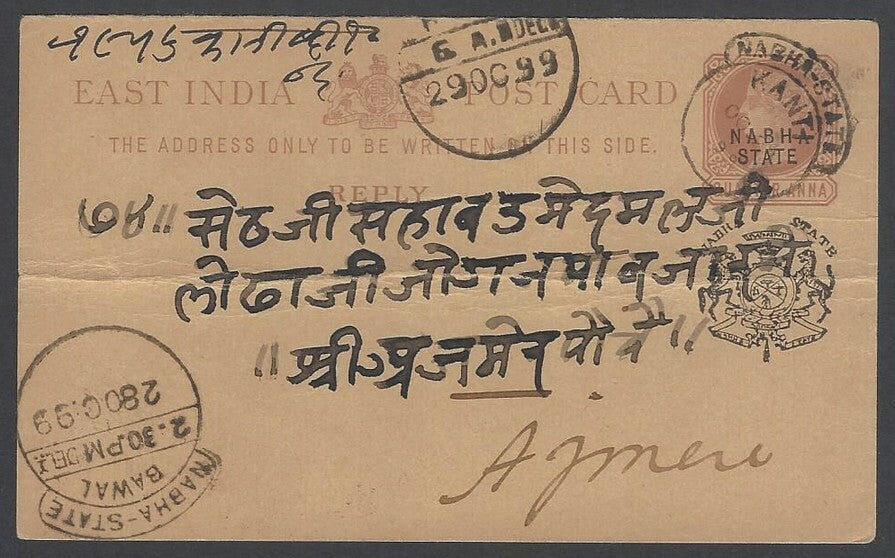 EAST INDIA POST CARD
THE ADDRESS ONLY TO BE WRITTEN ON THIS SIDE.
REPLY
6 A.M DELY
29 OC 99
NABHA-STATE
KANTI
NABHA
STATE
QUARTER ANNA
७४॥ सेठजी सहाब उमेदमलजी
लोढाजी जोग
NABHA STATE
॥ श्री अजमेर पौचे ॥
28 OC 99
2.30.PM DEL.
BAWAL
NABHA-STATE
Ajmere